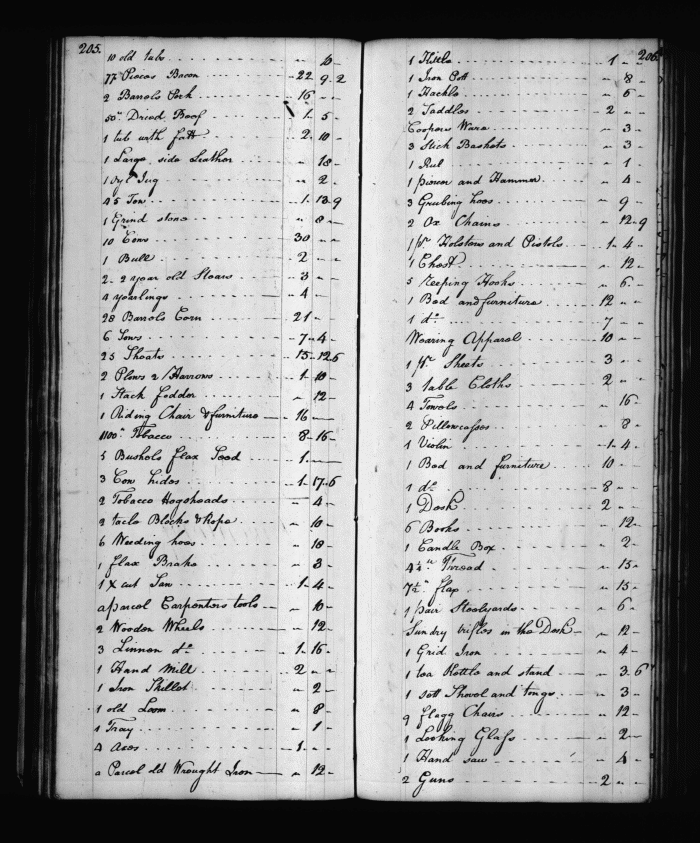 205.
10 old tubs - 6 -
77 Pieces Bacon - 22 9 2
2 Barrols Pork - 16 - -
50w Dried Beef - 1 5 -
1 tub with fatt - 2 10 -
1 Large side Leather - 18 -
1 oyl Jug - 2 -
45 Tow - 1 13 9
1 Grind stone - 8 -
10 Cows - 30 - -
1 Bull - 2 - -
2 2 year old Stears - 3 - -
4 yearlings - 4 - -
28 Barrols Corn - 21 - -
6 Sows - 7 4 -
23 Shoats - 15 12 6
2 Plows 2 Harrows - 1 10 -
1 Stack fodder - 12 -
1 Riding Chair & furniture - 16 -
1100w Tobacco - 8 16 -
5 Bushols flax Seed - 1 -
3 Cow hides - 1 17 6
2 Tobacco Hogsheads - 4 -
2 tacle Blocks & Rope - 10 -
6 Weeding hoes - 18 -
1 flax Brake - 3 -
1 X cut Saw - 1 4 -
a parcel Carpenters tools - 10 -
2 Wooden Wheels - 12 -
3 Linnen do - 1 16 -
1 Hand Mill - 2 - -
1 Iron Skillet - 2 -
1 old Loom - 8 -
1 Tray - 1 -
4 Axes - 1 - -
a Parcel old Wrought Iron - 12 -
206
1 Kittle - 1 -
1 Iron Pott - 8 -
1 Hackle - 6 -
2 Saddles - 2 - -
Coopers Ware - 3 -
3 Stick Baskets - 3 -
1 Rul - 1
1 and Hammer - 4 -
3 Grubing hoes - 9 -
2 Ox Chains - 12 9
1 pr Holsters and Pistols - 1 4 -
1 Chest - 12 -
5 Reeping Hooks - 6 -
1 Bed and furniture 12 - -
1 do - 7 - -
Wearing Apparel - 10 - -
1 pr Sheets - 3 - -
3 table Cloths - 2 - -
4 Towels - 16 -
2 Pillowcases - 8 -
1 Violin - 1 4 -
1 Bed and furniture - 10 - -
1 do - 8 - -
1 Desk - 2 - -
6 Books - 12 -
1 Candle Box - 2 -
4½w Thread - 15 -
7½w flax - 15 -
1 pair Steelyards - 6 -
Sundry trifles in the Desk - 12 -
1 Grid Iron - 4 -
1 tea Kettle and stand - 3 6
1 sett Shovel and tongs - 3 -
9 flagg Chairs - 12 -
1 Looking Glass - 2 -
1 Hand saw - 4 -
2 Guns - 2 - -